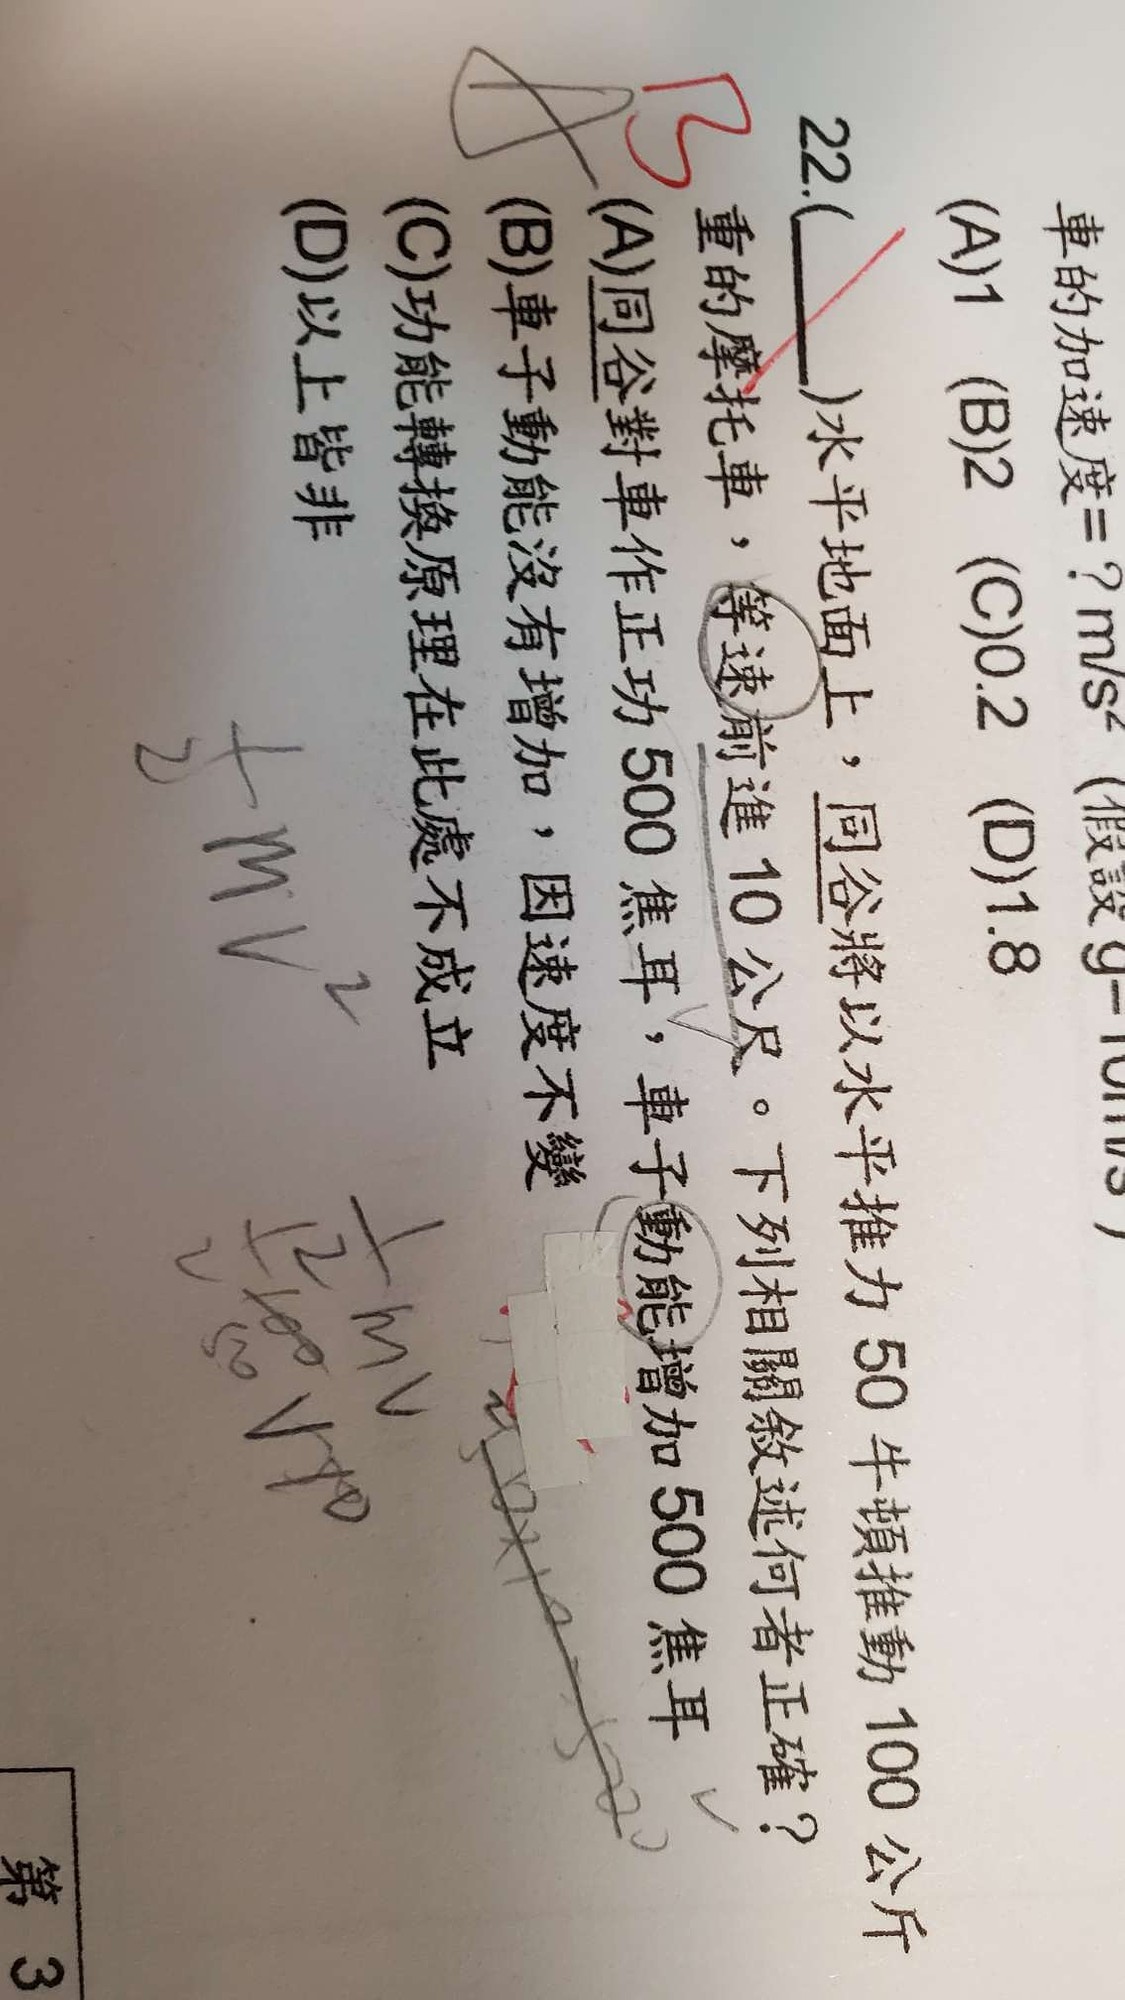 車的加速度=？m/s² (假設 g=10m/s
(A)1 (B)2 (C)0.2 (D)1.8
22.( )水平地面上，同谷將以水平推力 50 牛頓推動 100 公斤
重的摩托車，等速前進 10 公尺。下列相關敘述何者正確？
(A)同谷對車作正功 500 焦耳，車子動能增加 500 焦耳
(B)車子動能沒有增加，因速度不變
(C)功能轉換原理在此處不成立
(D)以上皆非
B
A
1/2 mv²
1/2 mv
第 3